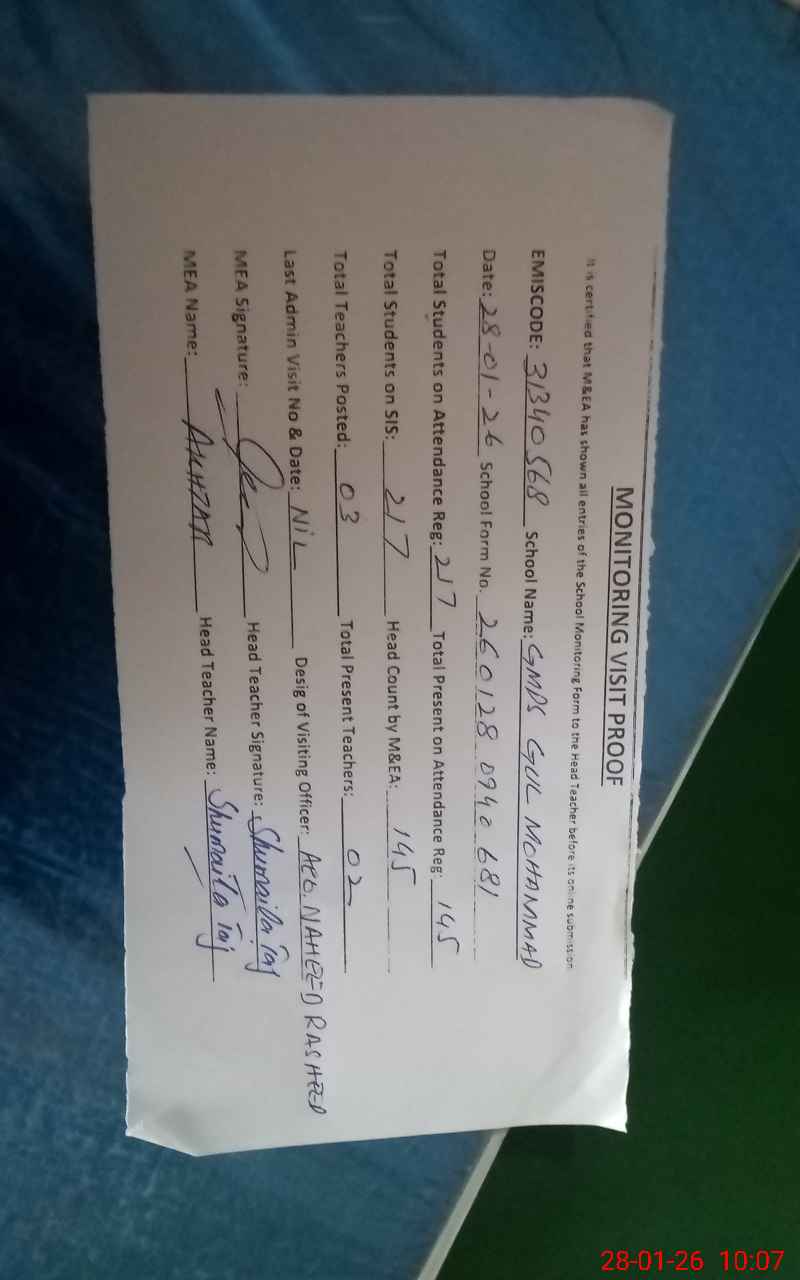 MONITORING VISIT PROOF
It is certified that M&EA has shown all entries of the School Monitoring Form to the Head Teacher before its online submission
EMISCODE: 31340568 School Name: GMPS GUL MOHAMMAD
Date: 28-01-26 School Form No. 260128 0940 681
Total Students on Attendance Reg: 217 Total Present on Attendance Reg: 145
Total Students on SIS: 217 Head Count by M&EA: 145
Total Teachers Posted: 03 Total Present Teachers: 02
Last Admin Visit No & Date: NiL Desig of Visiting Officer: AEO. NAHEED RASHEED
MEA Signature: Head Teacher Signature: Shumaila Taj
MEA Name: AKHTAR Head Teacher Name: Shumaila Taj
28-01-26 10:07